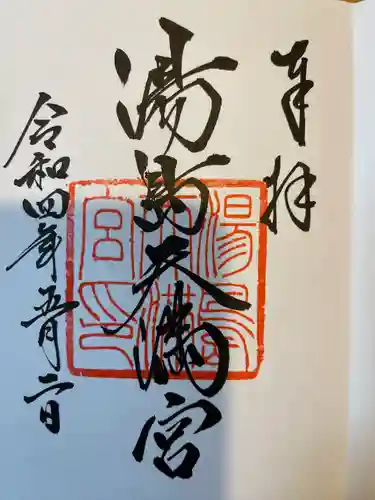 奉拝
湯島天満宮
令和四年五月二日